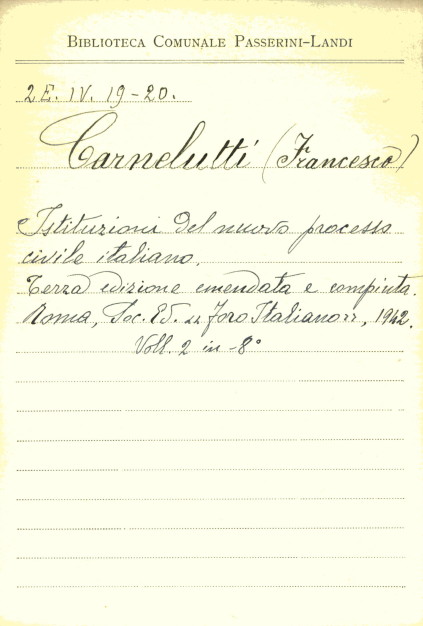 BIBLIOTECA COMUNALE PASSERINI-LANDI
2E. IV. 19-20.
Carnelutti (Francesco)
Istituzioni del nuovo processo
civile italiano.
Terza edizione emendata e compiuta.
Roma, Soc. Ed. "Foro Italiano", 1942.
Voll. 2 in -8°